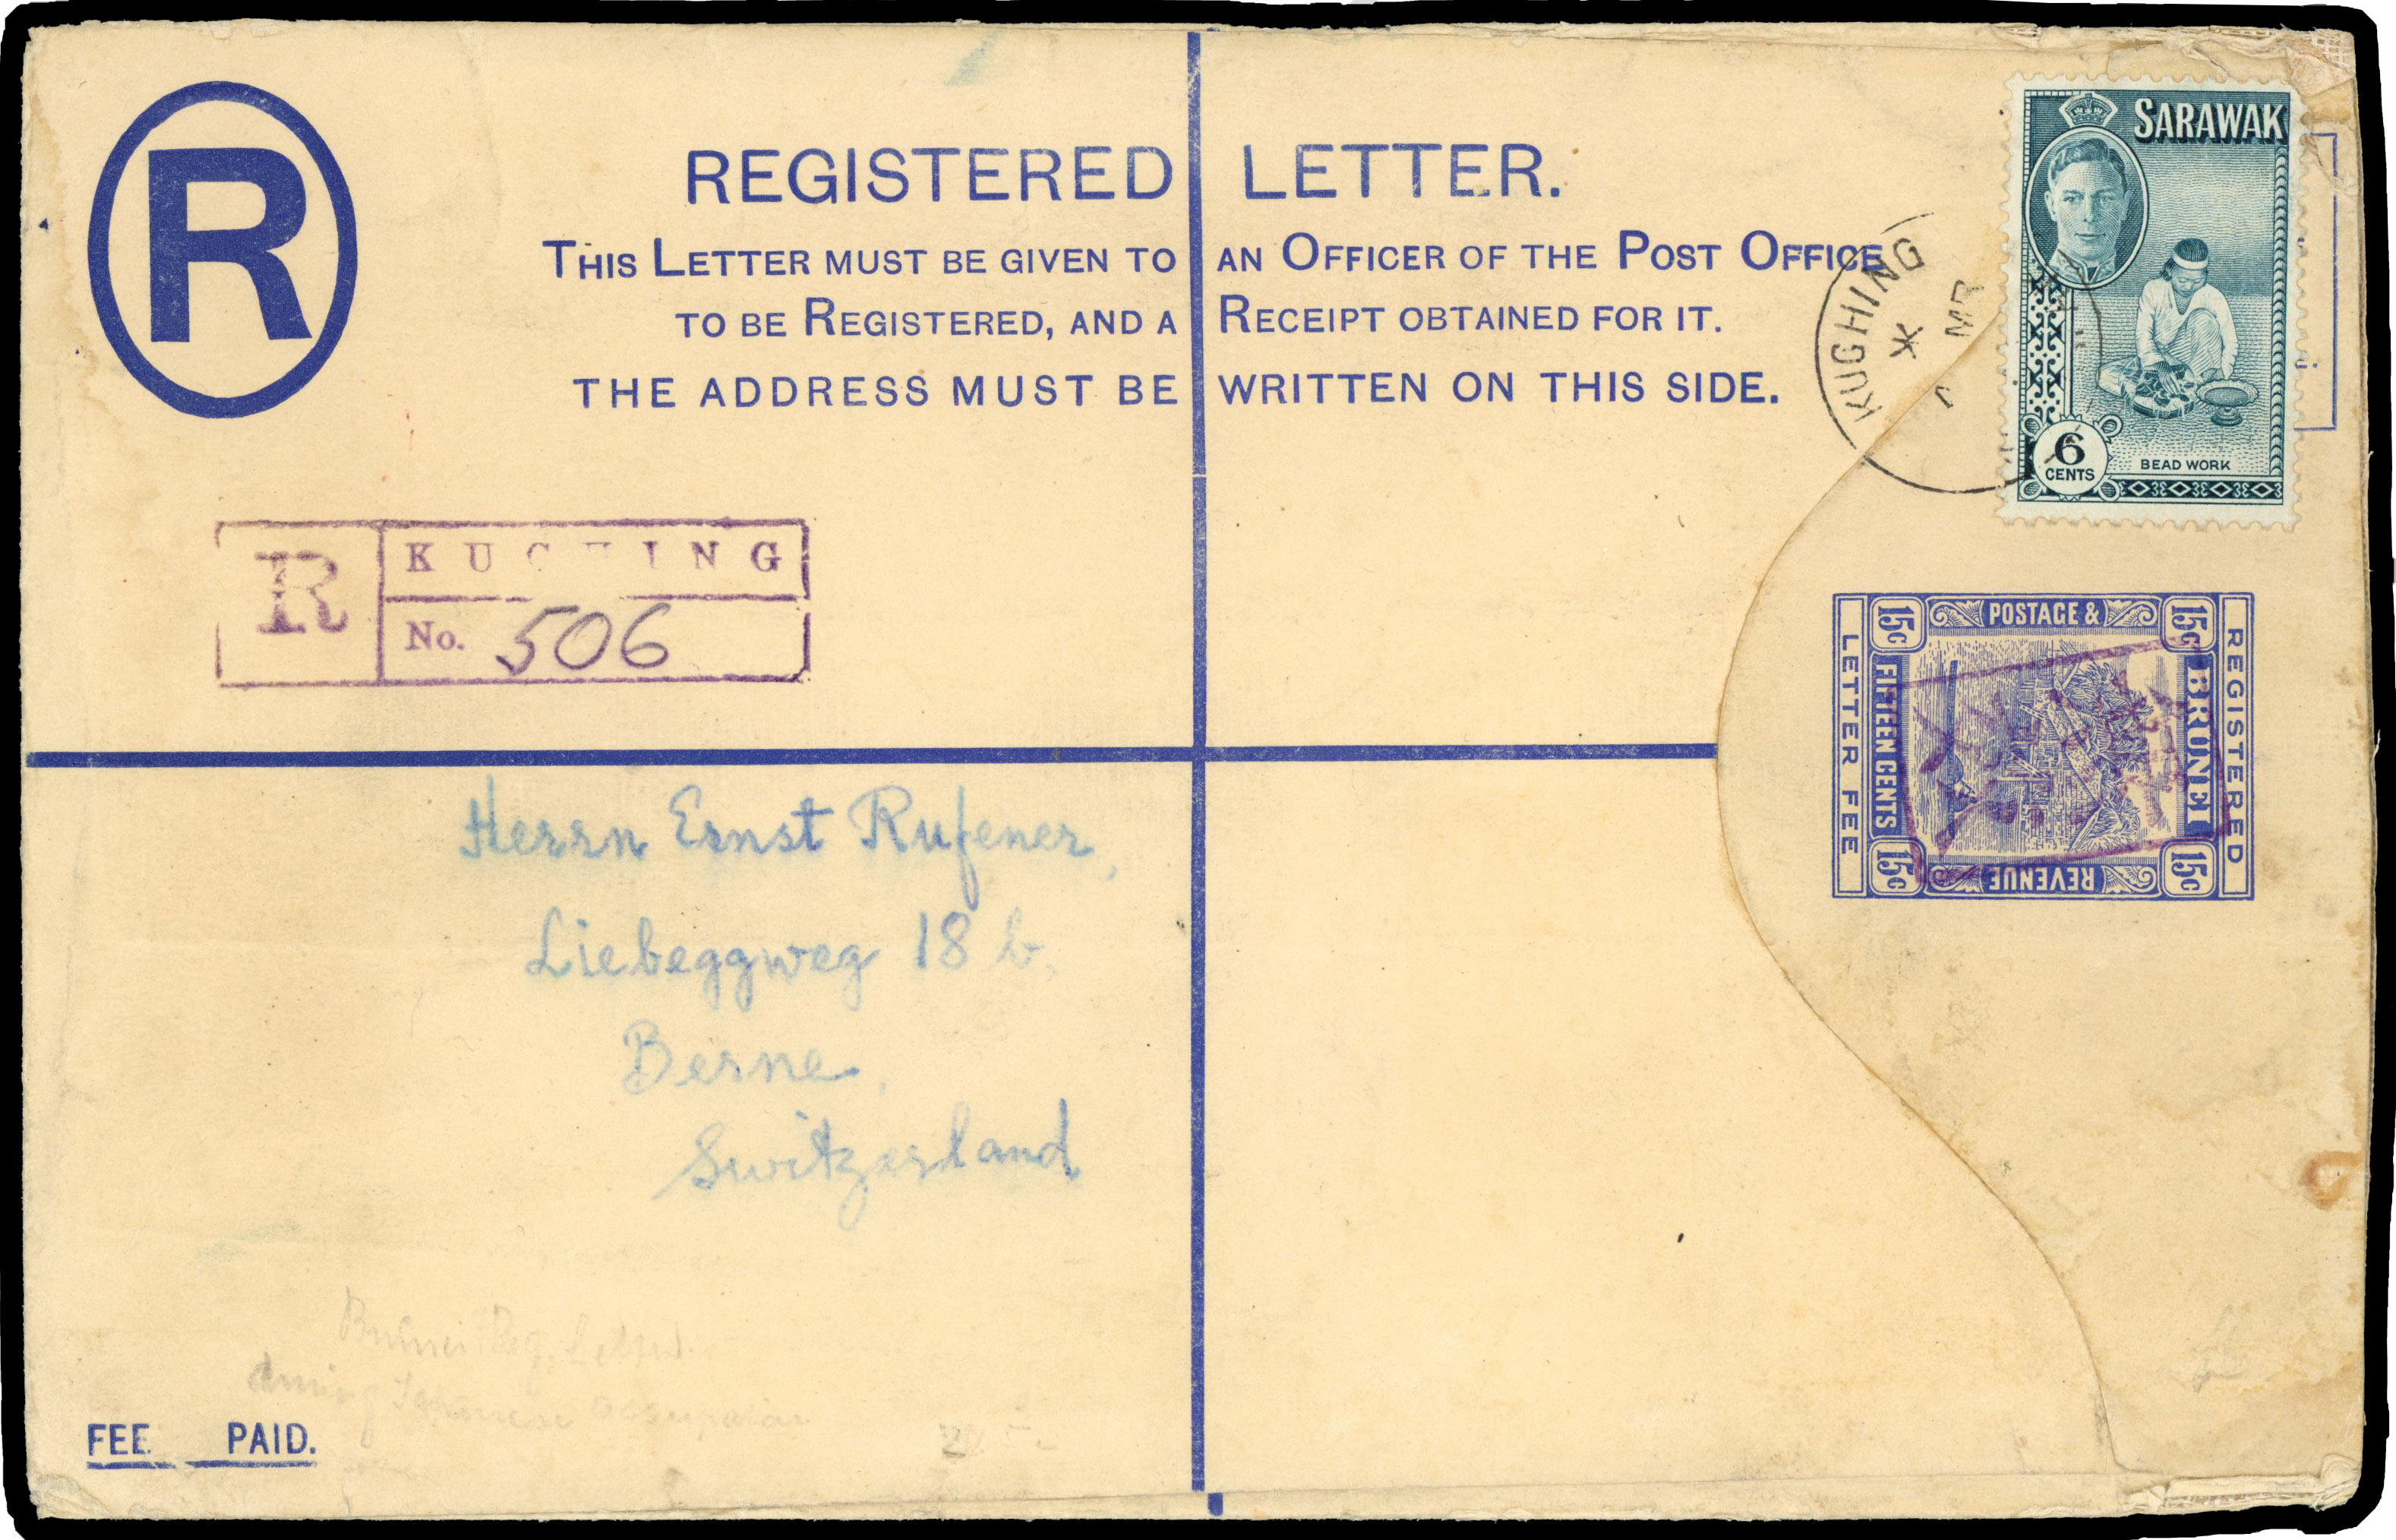 R
REGISTERED LETTER.
THIS LETTER MUST BE GIVEN TO AN OFFICER OF THE POST OFFICE
TO BE REGISTERED, AND A RECEIPT OBTAINED FOR IT.
THE ADDRESS MUST BE WRITTEN ON THIS SIDE.
SARAWAK
6
CENTS
BEAD WORK
KUCHING
MR
R
KUCHING
No. 506
POSTAGE &
REVENUE
BRUNEI
FIFTEEN CENTS
15c
15c
15c
15c
REGISTERED
LETTER FEE
Herrn Ernst Rufener,
Liebeggweg 18 b,
Berne,
Switzerland
Brunei Reg. Letter
during Japanese occupation
FEE PAID.